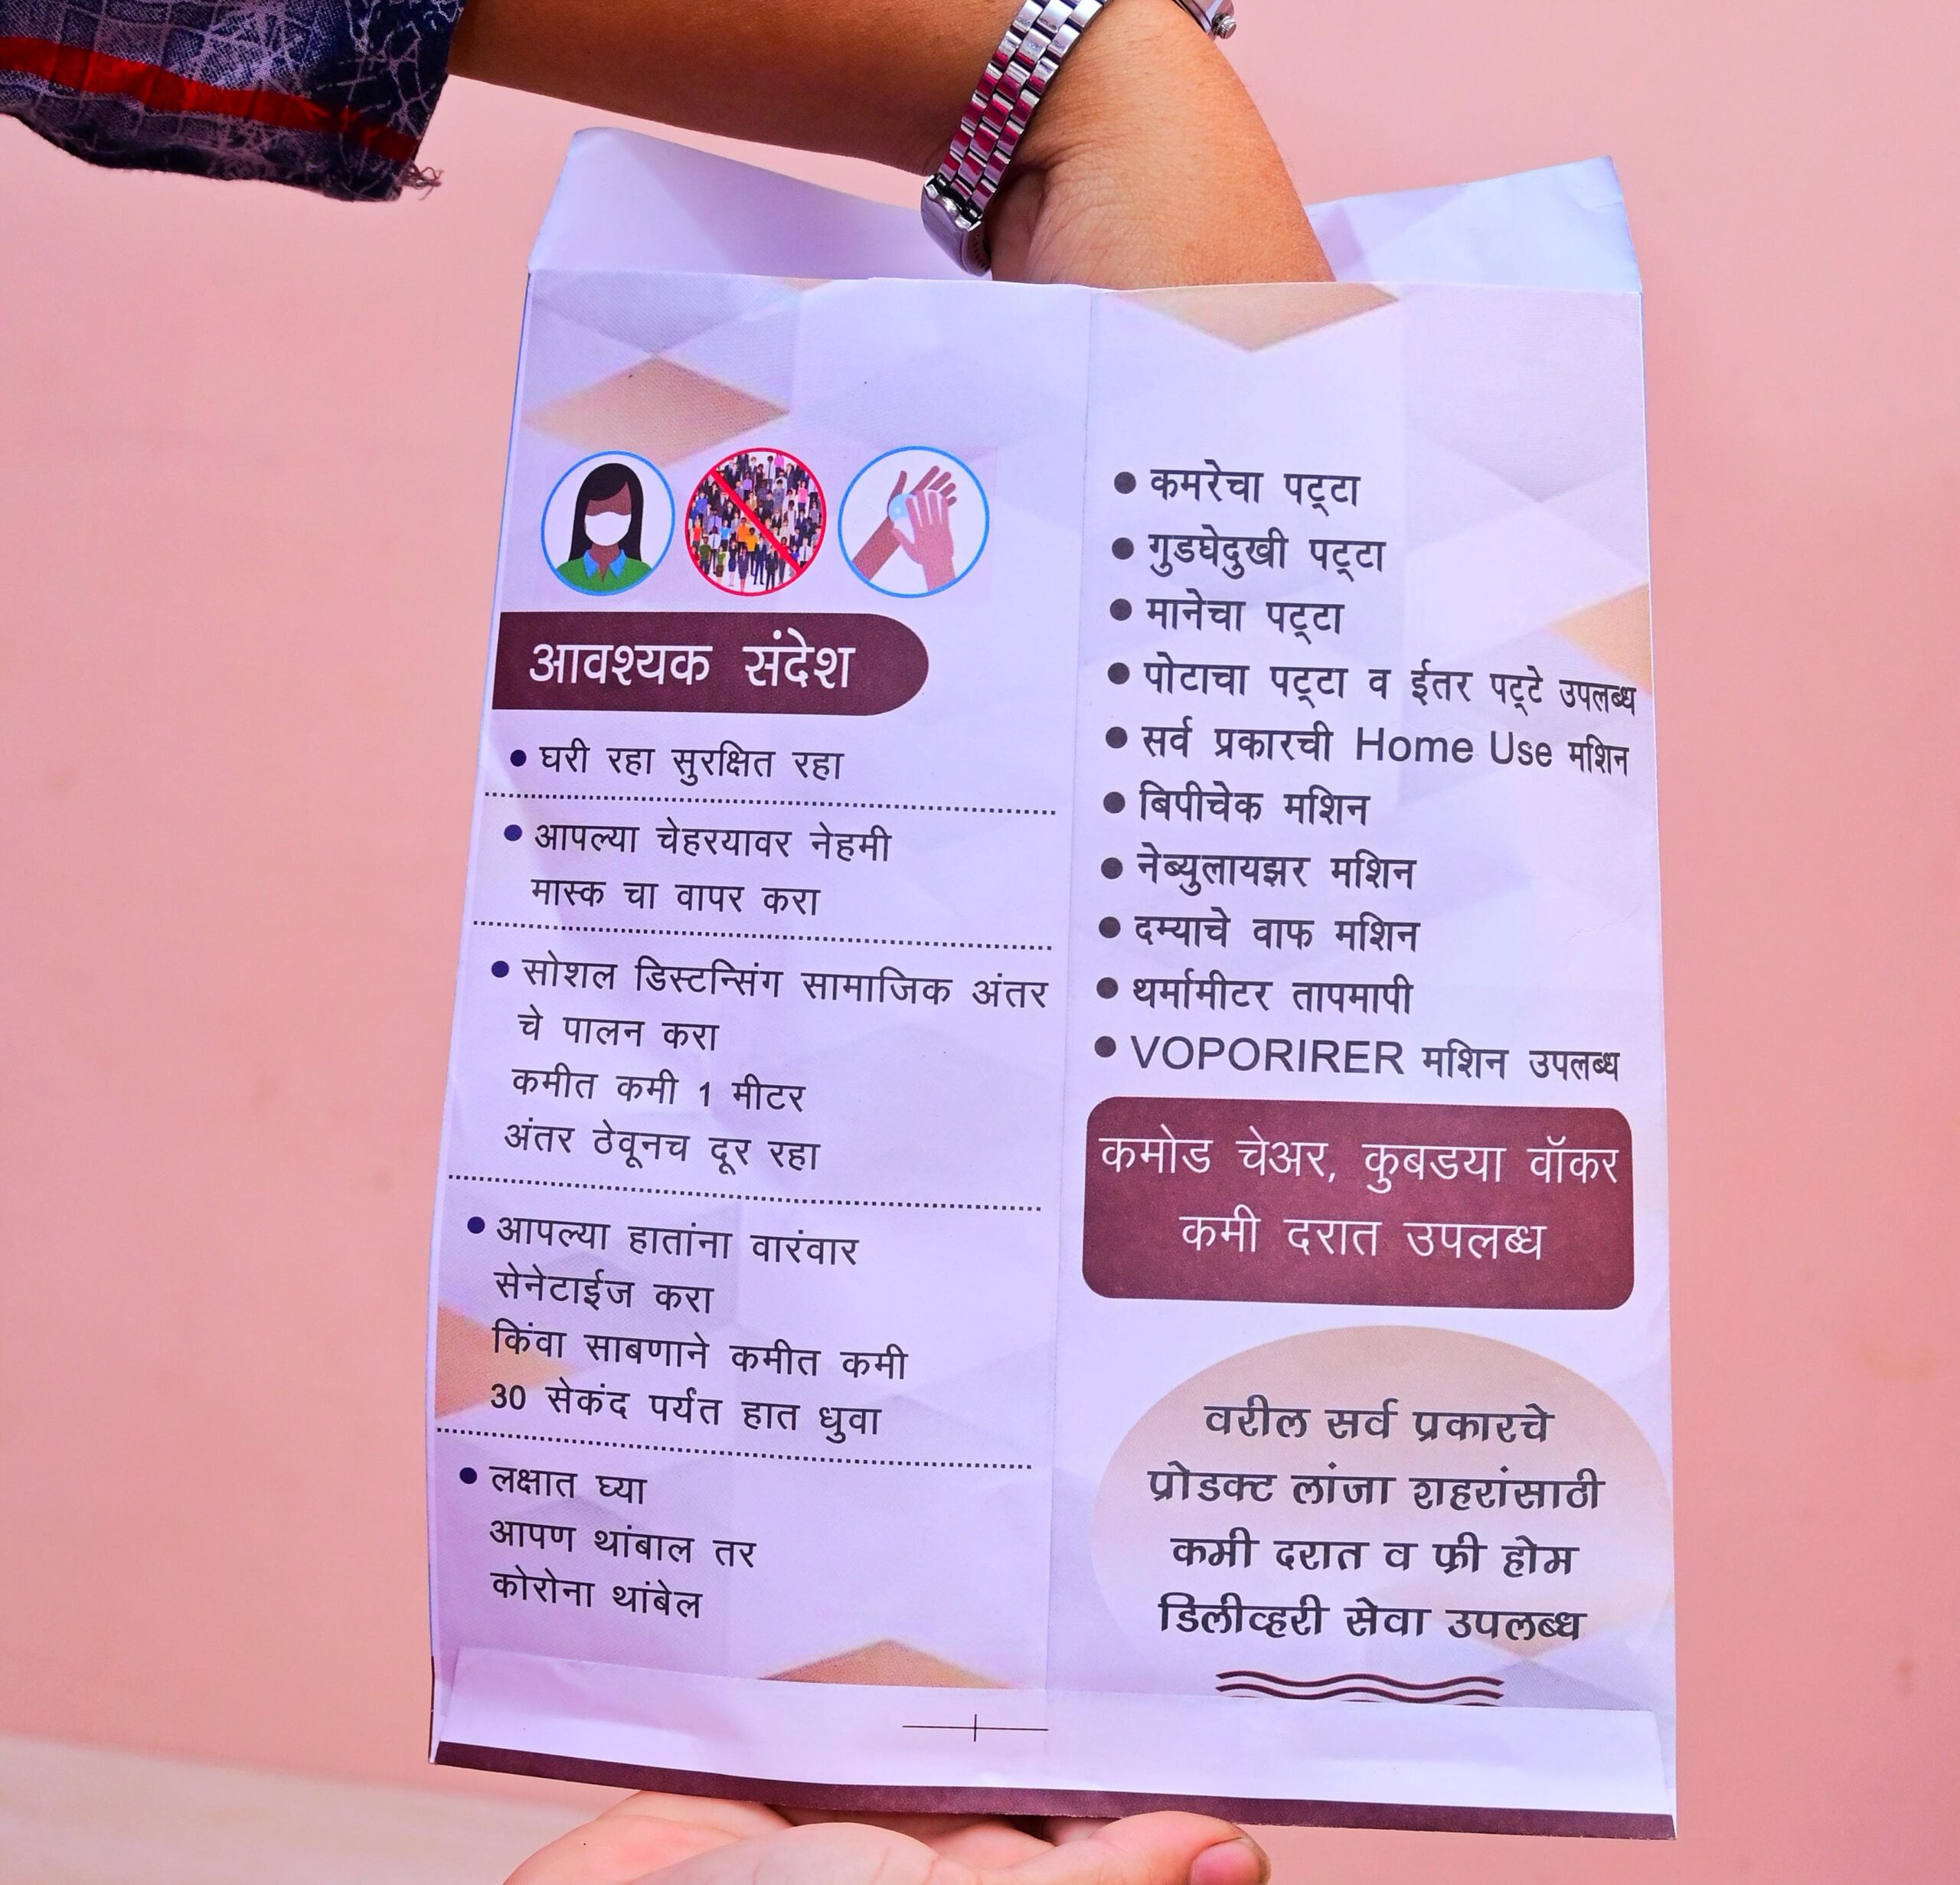 आवश्यक संदेश
• घरी रहा सुरक्षित रहा
• आपल्या चेहरयावर नेहमी
मास्क चा वापर करा
• सोशल डिस्टन्सिंग सामाजिक अंतर
चे पालन करा
कमीत कमी 1 मीटर
अंतर ठेवूनच दूर रहा
• आपल्या हातांना वारंवार
सेनेटाईज करा
किंवा साबणाने कमीत कमी
30 सेकंद पर्यंत हात धुवा
• लक्षात घ्या
आपण थांबाल तर
कोरोना थांबेल
• कमरेचा पट्टा
• गुडघेदुखी पट्टा
• मानेचा पट्टा
• पोटाचा पट्टा व ईतर पट्टे उपलब्ध
• सर्व प्रकारची Home Use मशिन
• बिपीचेक मशिन
• नेब्युलायझर मशिन
• दम्याचे वाफ मशिन
• थर्मामीटर तापमापी
• VOPORIRER मशिन उपलब्ध
कमोड चेअर, कुबडया वॉकर
कमी दरात उपलब्ध
वरील सर्व प्रकारचे
प्रोडक्ट लांजा शहरांसाठी
कमी दरात व फ्री होम
डिलीव्हरी सेवा उपलब्ध